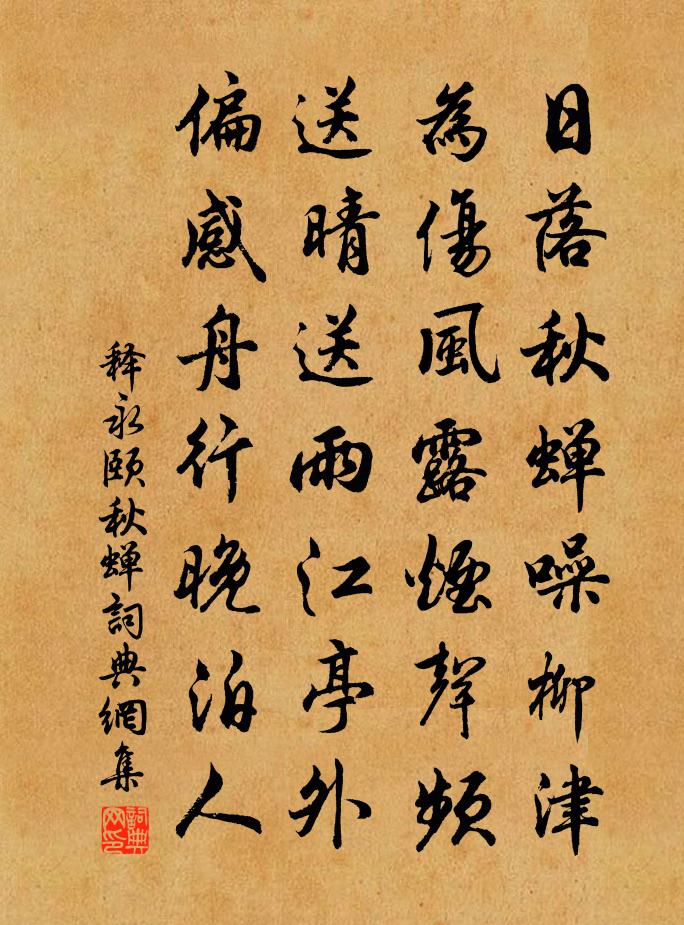 日落秋蟬噪柳津
為傷風露煙聲頻
送晴送雨江亭外
偏感舟行晚泊人
釋永頤秋蟬詞典網集
詞典網印